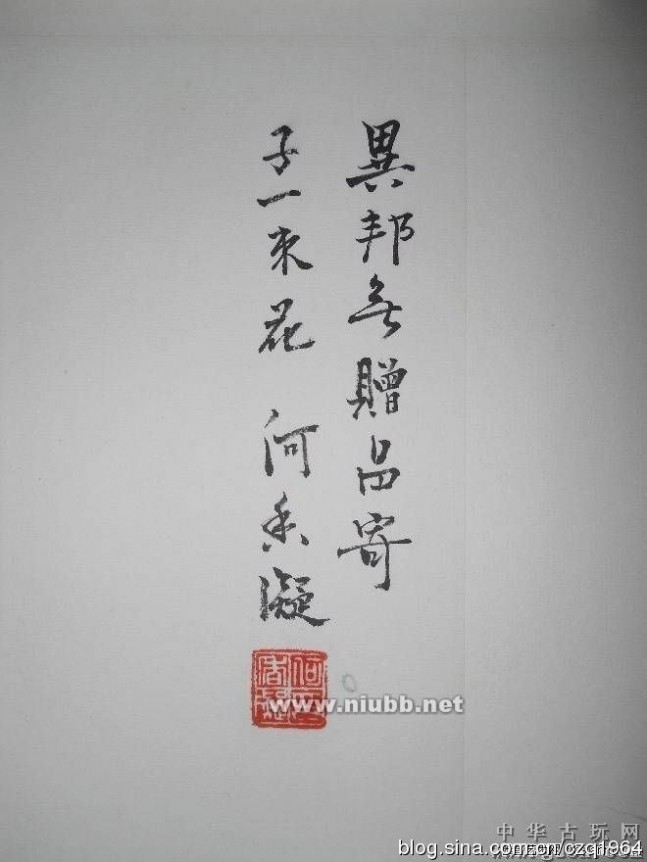 異邦無贈品寄
子一束花 何香凝
www.niubb.net
中华古玩网
blog.sina.com.cn/czg1964